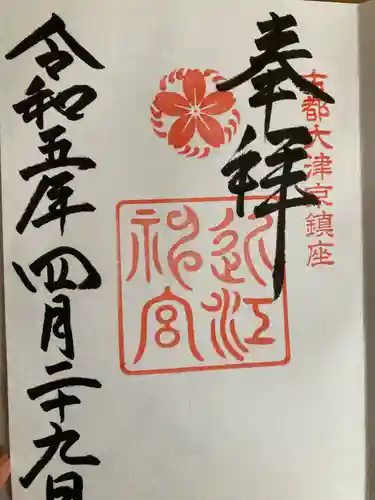 古都大津京鎮座
奉拝
近江神宮
令和五年四月二十九日